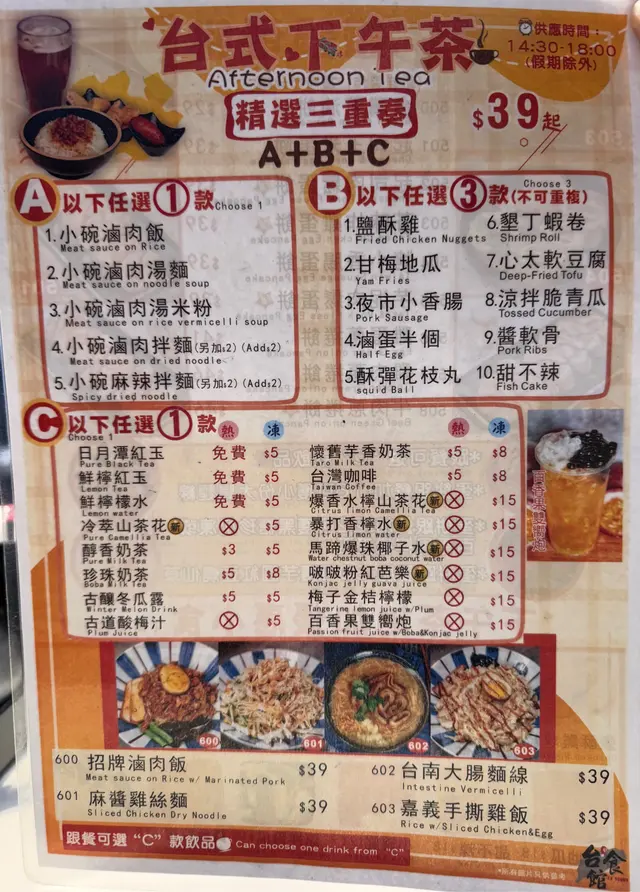 台式下午茶
Afternoon Tea
供應時間：
14:30-18:00
(假期除外)
精選三重奏
$39起
A+B+C
A 以下任選①款 Choose 1
1.小碗滷肉飯
Meat sauce on Rice
2.小碗滷肉湯麵
Meat sauce on noodle soup
3.小碗滷肉湯米粉
Meat sauce on rice vermicelli soup
4.小碗滷肉拌麵(另加$2) (Add$2)
Meat sauce on dried noodle
5.小碗麻辣拌麵(另加$2) (Add$2)
Spicy dried noodle
B 以下任選③款(不可重複) Choose 3
1.鹽酥雞
Fried Chicken Nuggets
2.甘梅地瓜
Yam Fries
3.夜市小香腸
Pork Sausage
4.滷蛋半個
Half Egg
5.酥彈花枝丸
squid Ball
6.墾丁蝦卷
Shrimp Roll
7.心太軟豆腐
Deep-Fried Tofu
8.涼拌脆青瓜
Tossed Cucumber
9.醬軟骨
Pork Ribs
10.甜不辣
Fish Cake
C 以下任選①款 熱 凍 熱 凍
Choose 1
日月潭紅玉 免費 $5
Pure Black Tea
鮮檸紅玉 免費 $5
Lemon Tea
鮮檸檬水 免費 $5
Lemon water
冷萃山茶花 新 ⓧ $5
Pure Camellia Tea
醇香奶茶 $3 $5
Pure Milk Tea
珍珠奶茶 $5 $8
Boba Milk Tea
古釀冬瓜露 $5 $5
Winter Melon Drink
古道酸梅汁 ⓧ $5
Plum Juice
懷舊芋香奶茶 $5 $8
Taro Milk Tea
台灣咖啡 $5 $8
Taiwan Coffee
爆香水檸山茶花 新 ⓧ $15
Citrus limon Camellia Tea
暴打香檸水 新 ⓧ $15
Citrus limon water
馬蹄爆珠椰子水 新 ⓧ $15
Water chestnut boba coconut water
啵啵粉紅芭樂 新 ⓧ $15
Konjac jelly guava juice
梅子金桔檸檬 ⓧ $15
Tangerine lemon juice w/Plum
百香果雙嚮炮 ⓧ $15
Passion fruit juice w/Boba&Konjac jelly
百香果雙嚮炮
600
601
602
603
600 招牌滷肉飯 $39
Meat sauce on Rice w/ Marinated Pork
601 麻醬雞絲麵 $39
Sliced Chicken Dry Noodle
602 台南大腸麵線 $39
Intestine Vermicelli
603 嘉義手撕雞飯 $39
Rice w/Sliced Chicken&Egg
跟餐可選 “C” 款飲品 Can choose one drink from “C”
台食館